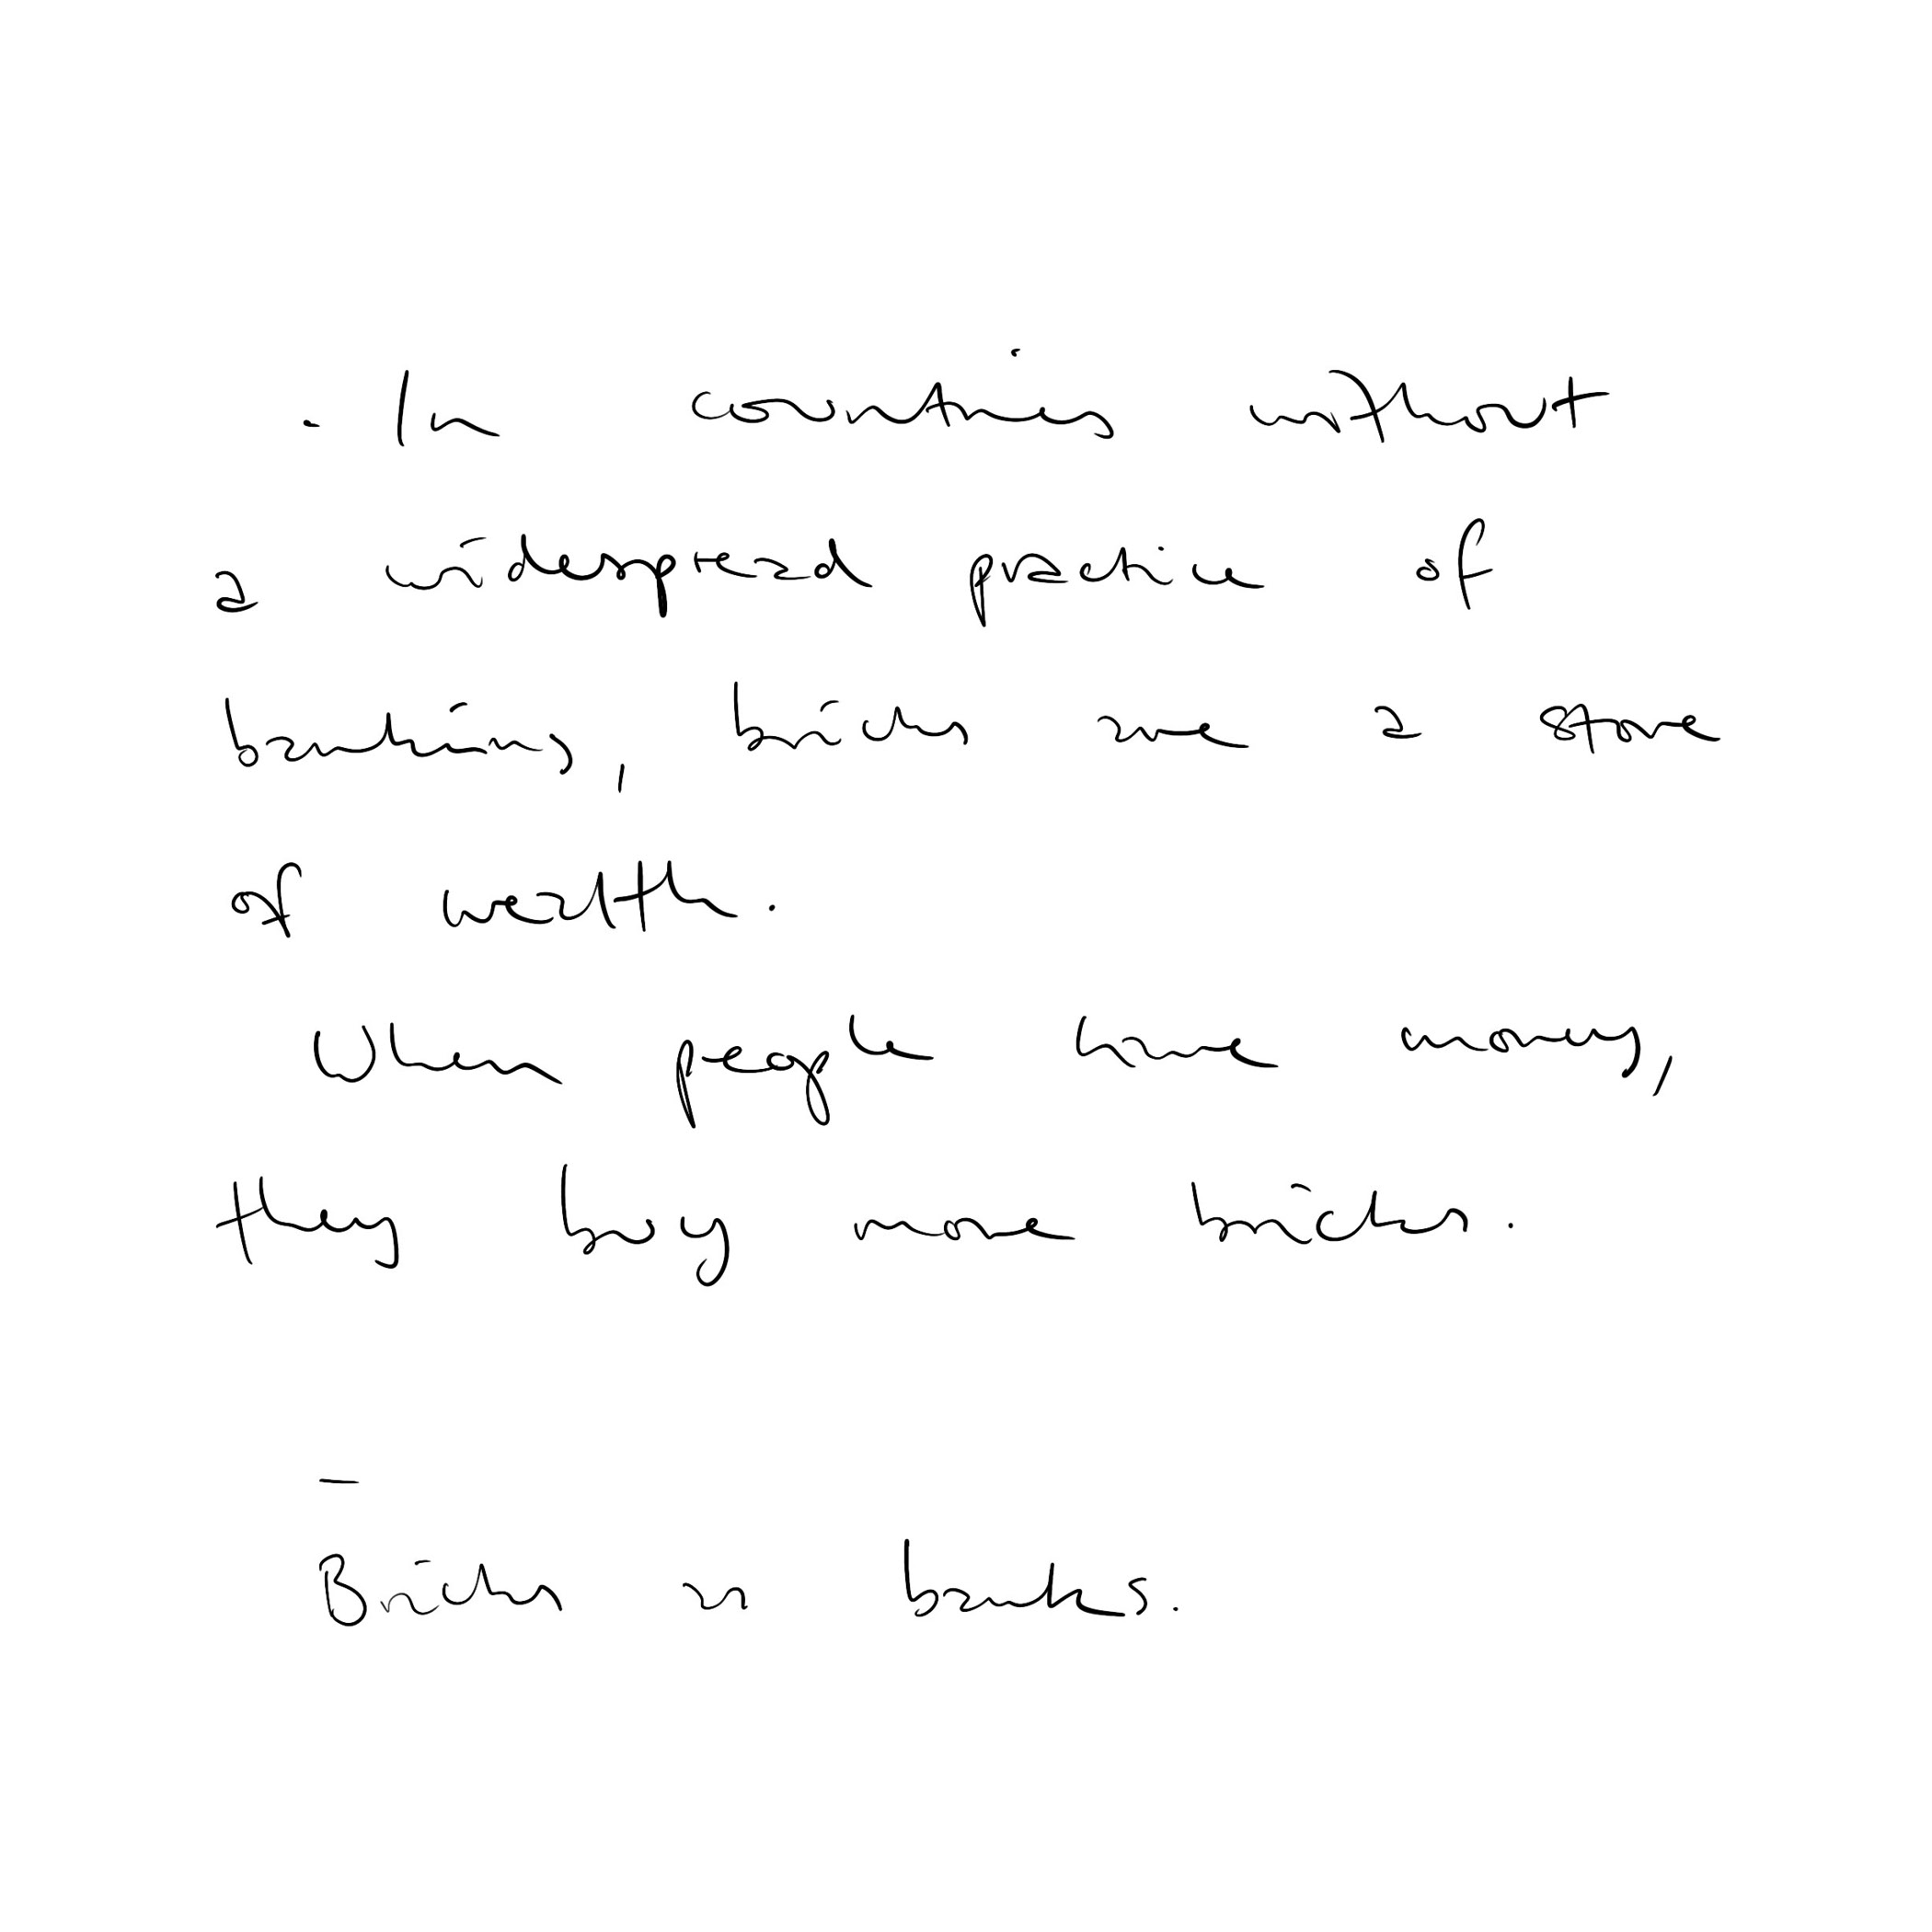 - In countries without
a widespread practice of
banking, bricks are a store
of wealth.
When people have money,
they buy more bricks.
—
Bricks vs banks.